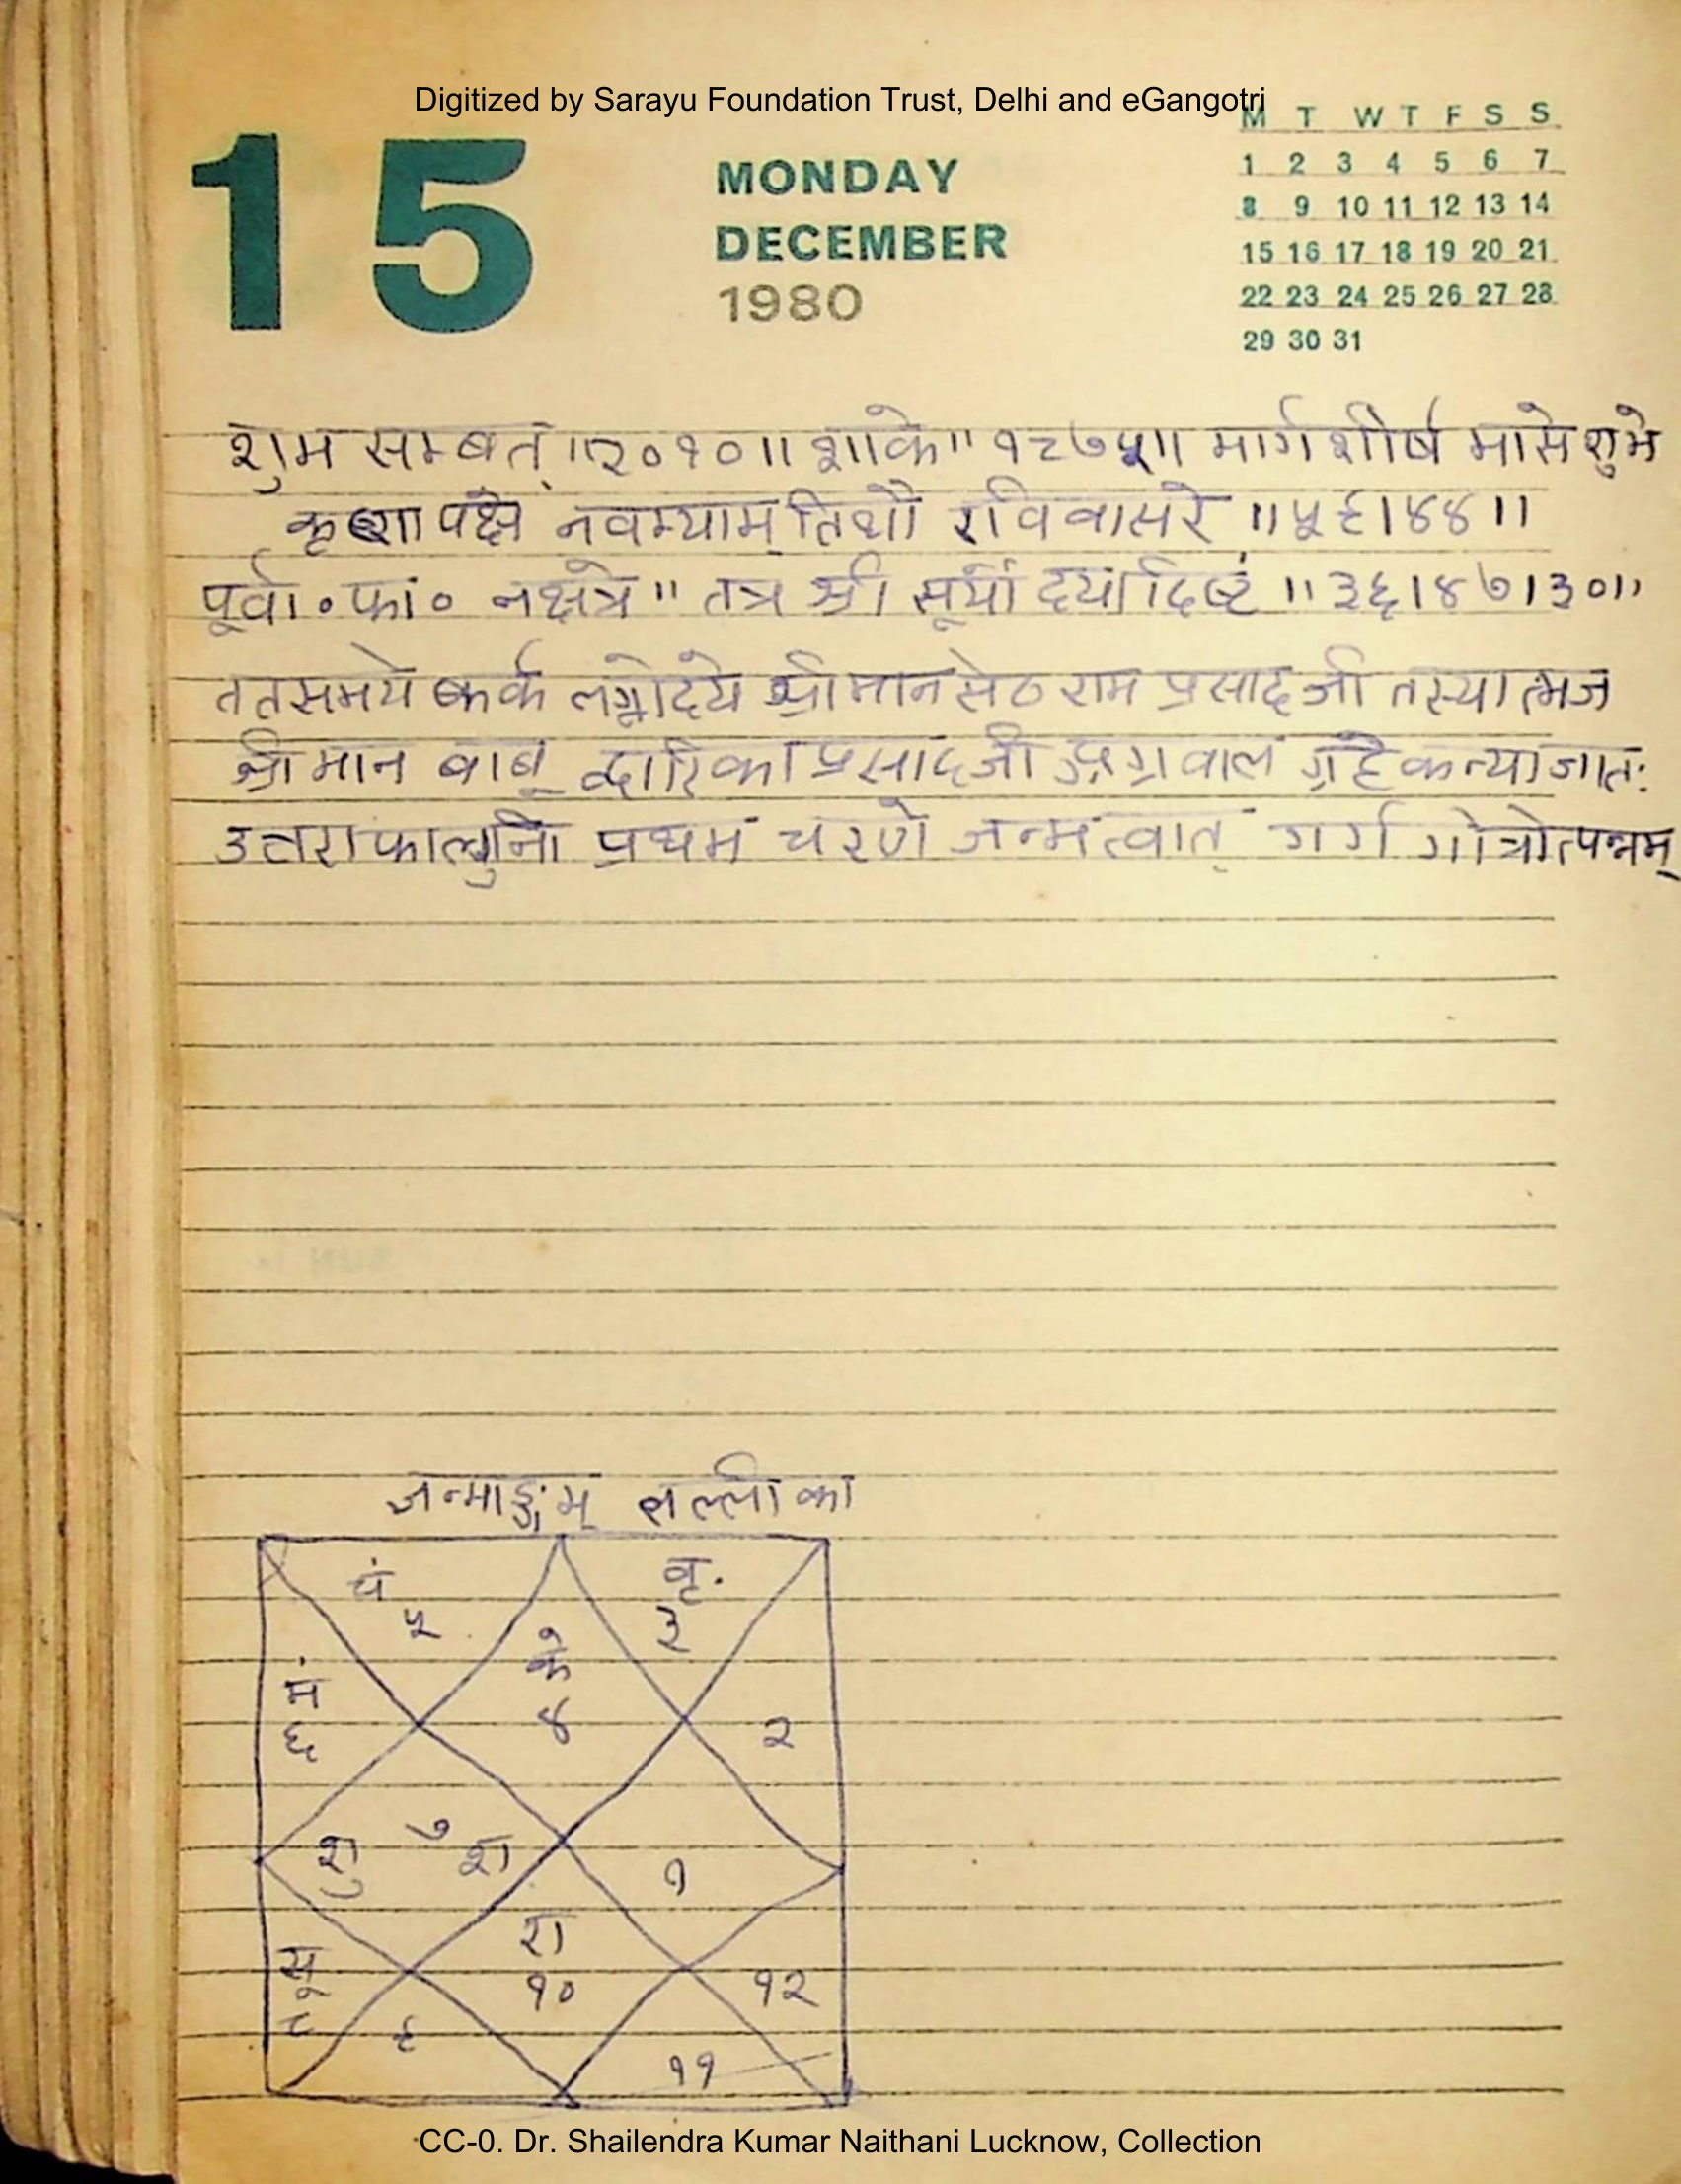 Digitized by Sarayu Foundation Trust, Delhi and eGangotri
15
MONDAY
DECEMBER
1980
M T W T F S S
1 2 3 4 5 6 7
8 9 10 11 12 13 14
15 16 17 18 19 20 21
22 23 24 25 26 27 28
29 30 31
शुभ सम्बत् ॥२०१०॥ शाके॥ १८७५॥ मार्ग शीर्ष मासे शुभे
कृष्ण पक्षे नवम्याम् तिथौ रवि वासरे ॥५९।४४॥
पूर्वा॰ फा॰ नक्षत्रे॥ तत्र श्री सूर्यो दयादिष्टं ॥३६।४७।३०॥
ततसमये कर्क लग्नोदये श्रीमान सेठ राम प्रसाद जी तस्यात्मज
श्रीमान बाबू द्वारिका प्रसाद जी अग्रवाल ग्रहे कन्या जातः
उत्तराफाल्गुनी प्रथम चरणे जन्मत्वात् गर्ग गोत्रोत्पन्नम्
जन्माङ्गम् लल्ली का
चं वृ.
५ ३
के
मं
६ ४ २
७
शु श १
रा
सू १० १२
८ ९
११
CC-0. Dr. Shailendra Kumar Naithani Lucknow, Collection